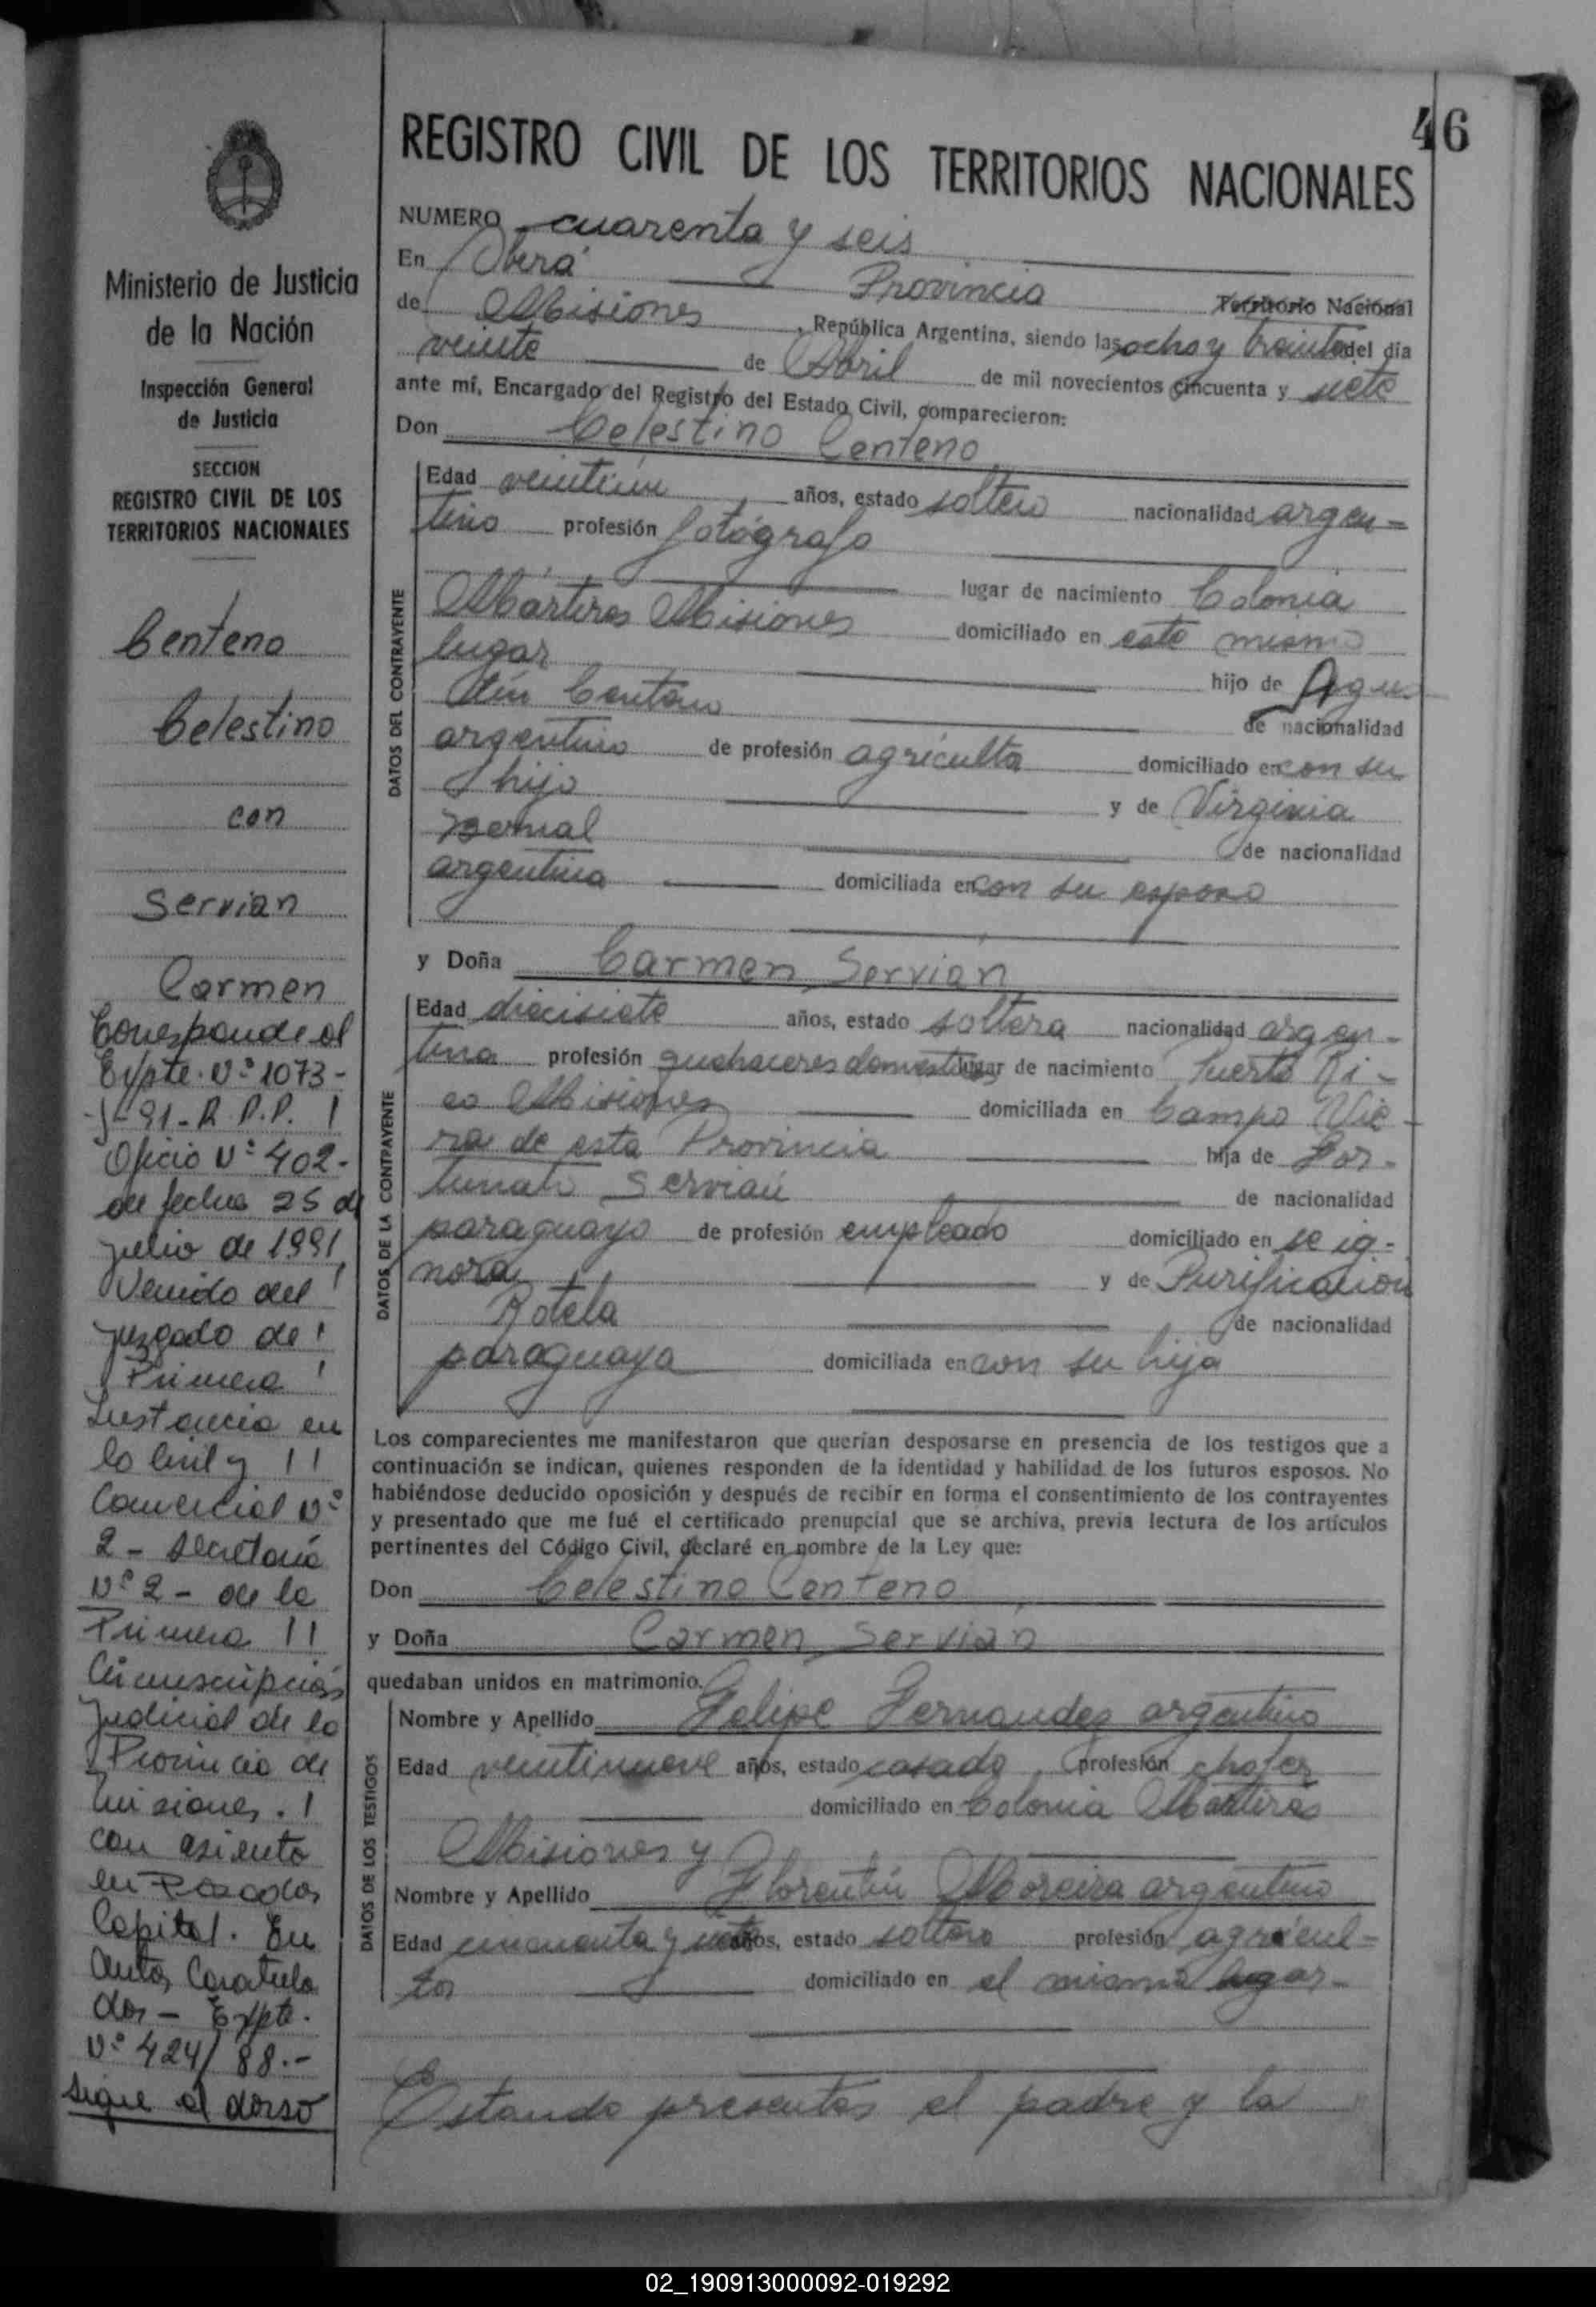 46
REGISTRO CIVIL DE LOS TERRITORIOS NACIONALES
NUMERO cuarenta y seis
En Oberá Provincia Territorio Nacional
de Misiones, República Argentina, siendo las ocho y treinta del día
veinte de Abril de mil novecientos cincuenta y siete
ante mí, Encargado del Registro del Estado Civil, comparecieron:
Don Celestino Centeno
DATOS DEL CONTRAYENTE
Edad veintiún años, estado soltero nacionalidad argen-
tino profesión fotógrafo
lugar de nacimiento Colonia
Mártires Misiones domiciliado en este mismo
lugar hijo de Agus
tín Centeno de nacionalidad
argentino de profesión agricultor domiciliado en con su
hijo y de Virginia
Bernal de nacionalidad
argentina domiciliada en con su esposo
y Doña Carmen Servián
DATOS DE LA CONTRAYENTE
Edad diecisiete años, estado soltera nacionalidad argen-
tina profesión quehaceres domésticos lugar de nacimiento Puerto Ri-
co Misiones domiciliada en Campo Vie-
ra de esta Provincia hija de For-
tunato Servián de nacionalidad
paraguayo de profesión empleado domiciliado en se ig-
nora y de Purificación
Rotela de nacionalidad
paraguaya domiciliada en con su hija
Los comparecientes me manifestaron que querían desposarse en presencia de los testigos que a
continuación se indican, quienes responden de la identidad y habilidad de los futuros esposos. No
habiéndose deducido oposición y después de recibir en forma el consentimiento de los contrayentes
y presentado que me fué el certificado prenupcial que se archiva, previa lectura de los artículos
pertinentes del Código Civil, declaré en nombre de la Ley que:
Don Celestino Centeno
y Doña Carmen Servián
quedaban unidos en matrimonio.
DATOS DE LOS TESTIGOS
Nombre y Apellido Felipe Fernandez argentino
Edad veintinueve años, estado casado profesión chofer
domiciliado en Colonia Mártires
Misiones y
Nombre y Apellido Florentín Moreira argentino
Edad cincuenta y siete años, estado soltero profesión agricul-
tor domiciliado en el mismo lugar-
Estando presentes el padre y la
Ministerio de Justicia
de la Nación
Inspección General
de Justicia
SECCION
REGISTRO CIVIL DE LOS
TERRITORIOS NACIONALES
Centeno
Celestino
con
Servian
Carmen
Corresponde al
Expte. Nº 1073-
J-91-R.P.P.
Oficio Nº 402-
de fecha 25 de
julio de 1991
Venido del
juzgado de
Primera
Instancia en
lo Civil y
Comercial Nº
2 - Secretaría
Nº 2 - de la
Primera
Circunscripción
Judicial de la
Provincia de
Misiones.
con asiento
en Posadas
Capital. En
autos Caratula
dos - Expte.
Nº 424/88.-
sigue al dorso
02_190913000092-019292